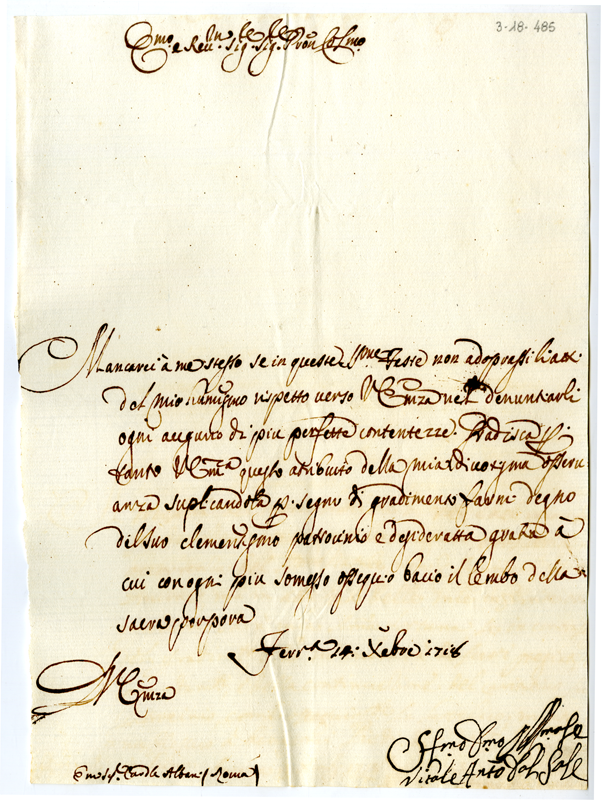 3-18-485
Emo. e Rev.mo Sig. Sig. Pron Colmo.
Mancarei à me stesso se in queste S.me Feste non adoprassi li atti
del mio humilissmo rispetto verso V Emza nel denuntiarli
ogni augurio di piu perfette contentezze. Gradisca p.
tanto V Em.a questo atributo della mia divotissma osseru
anza suplicandola p. segno di gradimento farmi degno
del suo clementissmo patrocinio e desideratta gratia à
cui con ogni piu somesso ossequio bacio il lembo della
sacra porpora
Ferr.a 14: Xbre 1718
V Emza
Vitale Anto Dal Sale
Emo Sig. Cardle Albani (Roma)